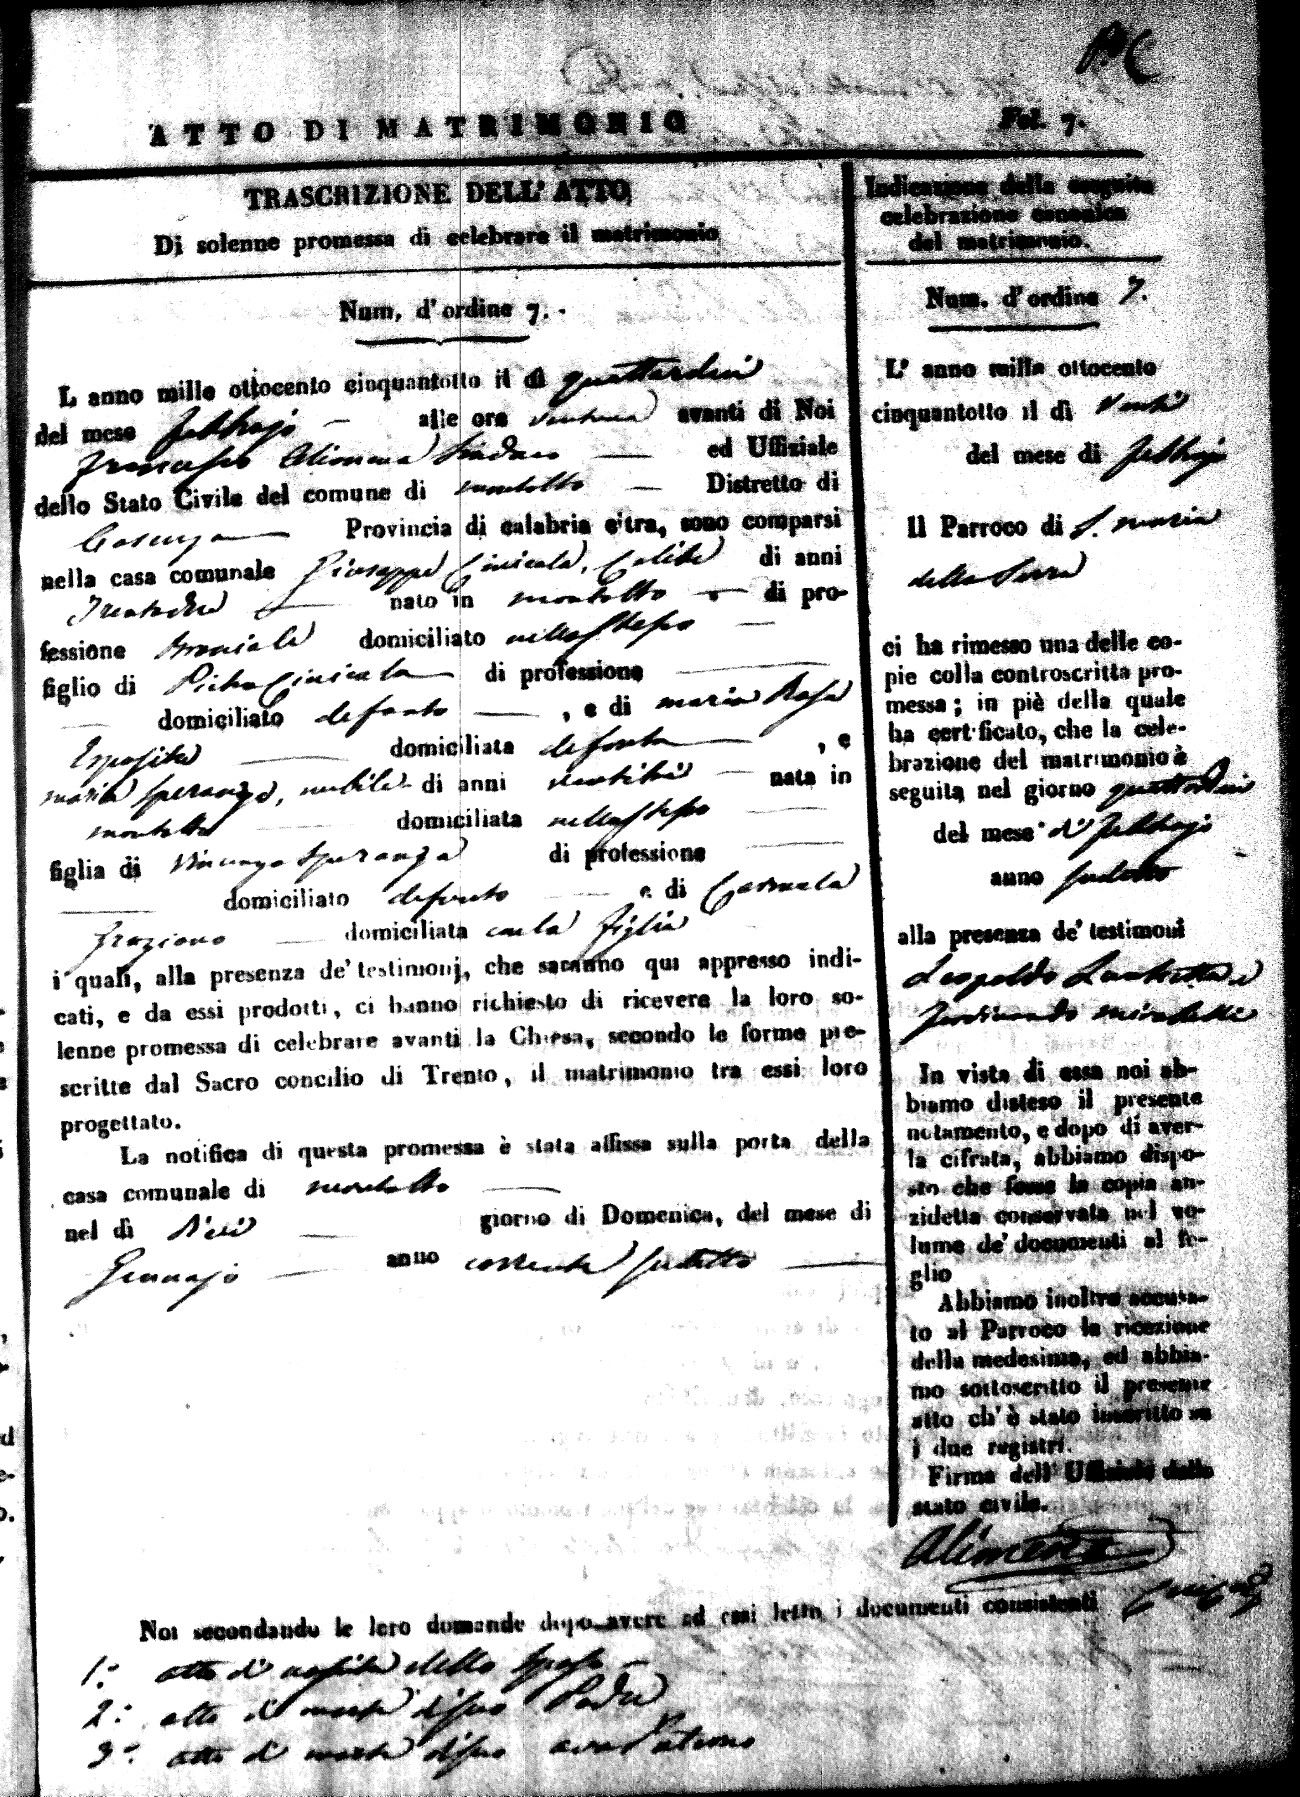 ATTO DI MATRIMONIO
Fol. 7.
TRASCRIZIONE DELL' ATTO
Di solenne promessa di celebrare il matrimonio
Num. d'ordine 7.
L anno mille ottocento cinquantotto il dì quattordici
del mese Febbrajo alle ore ventuna avanti di Noi
Francesco Alimena Sindaco ed Uffiziale
dello Stato Civile del comune di Montalto Distretto di
Cosenza Provincia di calabria citra, sono comparsi
nella casa comunale Giuseppe Cinicola, Celibe di anni
Trentadue nato in Montalto di pro-
fessione Bracciale domiciliato nello stesso
figlio di Pietro Cinicola di professione
domiciliato defonto , e di Maria Rosa
Esposito domiciliata defonta , e
Maria Speranza, nubile di anni nata in
Montalto domiciliata nello stesso
figlia di Vincenzo Speranza di professione
domiciliato defonto e di Carmela
Graziano domiciliata colla figlia
i quali, alla presenza de' testimonj, che saranno qui appresso indi-
cati, e da essi prodotti, ci hanno richiesto di ricevere la loro so-
lenne promessa di celebrare avanti la Chiesa, secondo le forme pre-
scritte dal Sacro concilio di Trento, il matrimonio tra essi loro
progettato.
La notifica di questa promessa è stata affissa sulla porta della
casa comunale di Montalto
nel dì Dieci giorno di Domenica, del mese di
Gennajo anno corrente sudetto
Indicazione della seguita
celebrazione canonica
del matrimonio.
Num. d'ordine 7.
L' anno mille ottocento
cinquantotto il dì Venti
del mese di Febbrajo
Il Parroco di S. Maria
della Serra
ci ha rimesso una delle co-
pie colla controscritta pro-
messa; in piè della quale
ha certificato, che la cele-
brazione del matrimonio è
seguita nel giorno quattordici
del mese di Febbrajo
anno sudetto
alla presenza de' testimoni
Leopoldo Lucchetta e
Ferdinando Mirabelli
In vista di essa noi ab-
biamo disteso il presente
notamento, e dopo di aver-
la cifrata, abbiamo dispo-
sto che fosse la copia an-
zidetta conservata nel vo-
lume de' documenti al fo-
glio
Abbiamo inoltre accusa-
to al Parroco la ricezione
della medesima, ed abbia-
mo sottoscritto il presente
atto ch' è stato inscritto su
i due registri.
Firma dell' Uffiziale dello
stato civile.
Alimena
Noi secondando le loro domande dopo avere ad essi letto i documenti consistenti
1.° atto di nascita dello sposo
2.° atto di morte di suo Padre
3.° atto di morte di suo avo Paterno